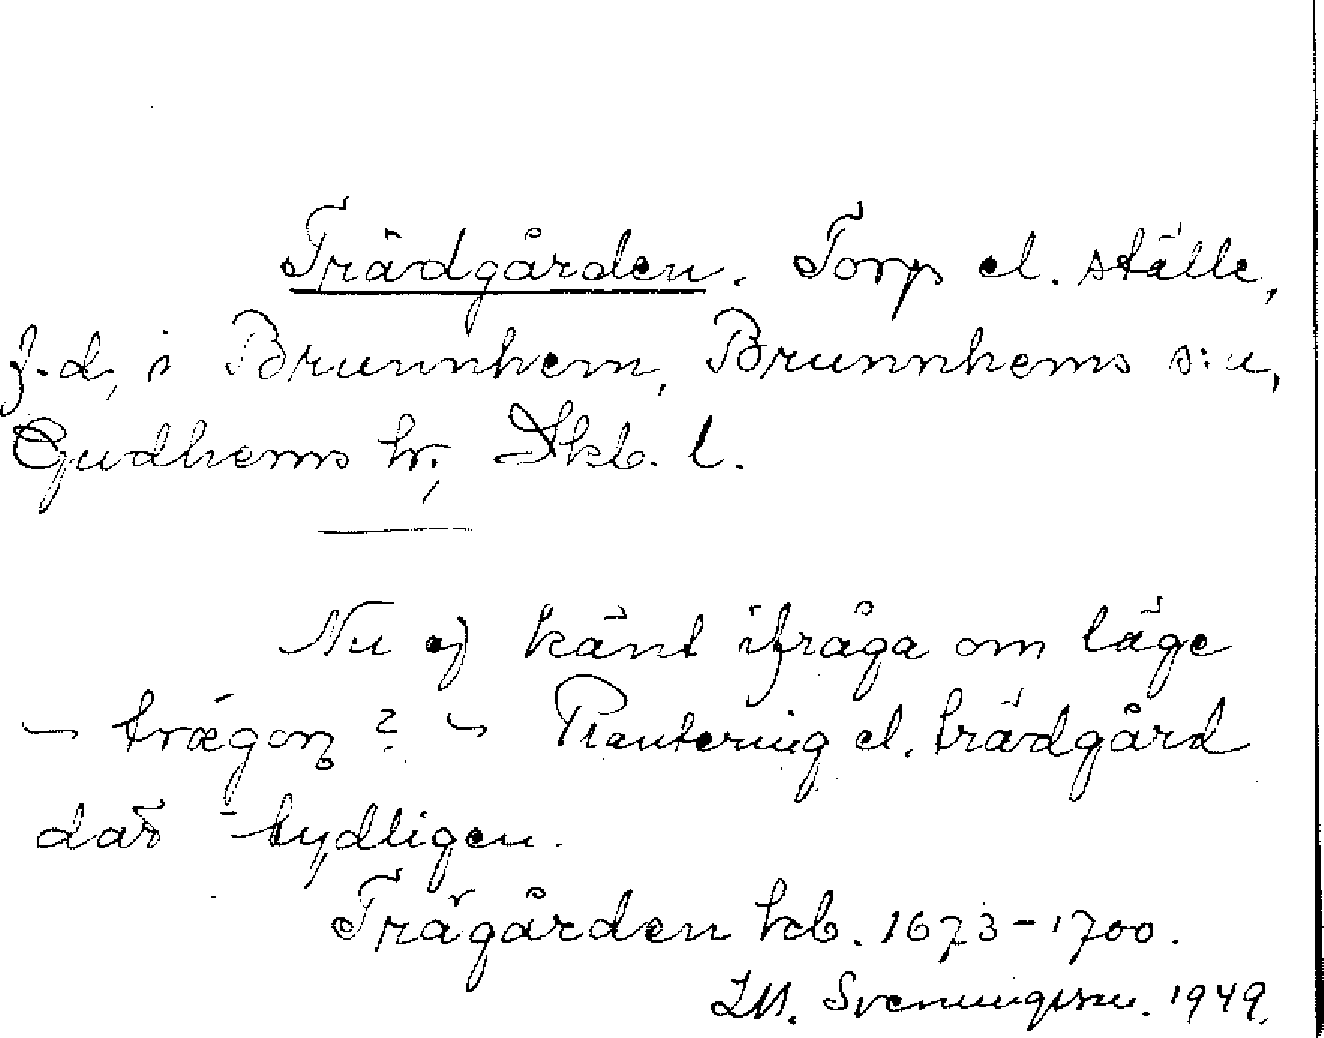 Trädgården. Torp el. ställe,
f.d., i Brunnhem, Brunnhems s:n,
Gudhems hr, Skb. l.
Nu ej känt ifråga om läge
- trægοn? - Plantering el. trädgård
där tydligen.
Trägården kb. 1673-1700.
Sveningsson. 1949.